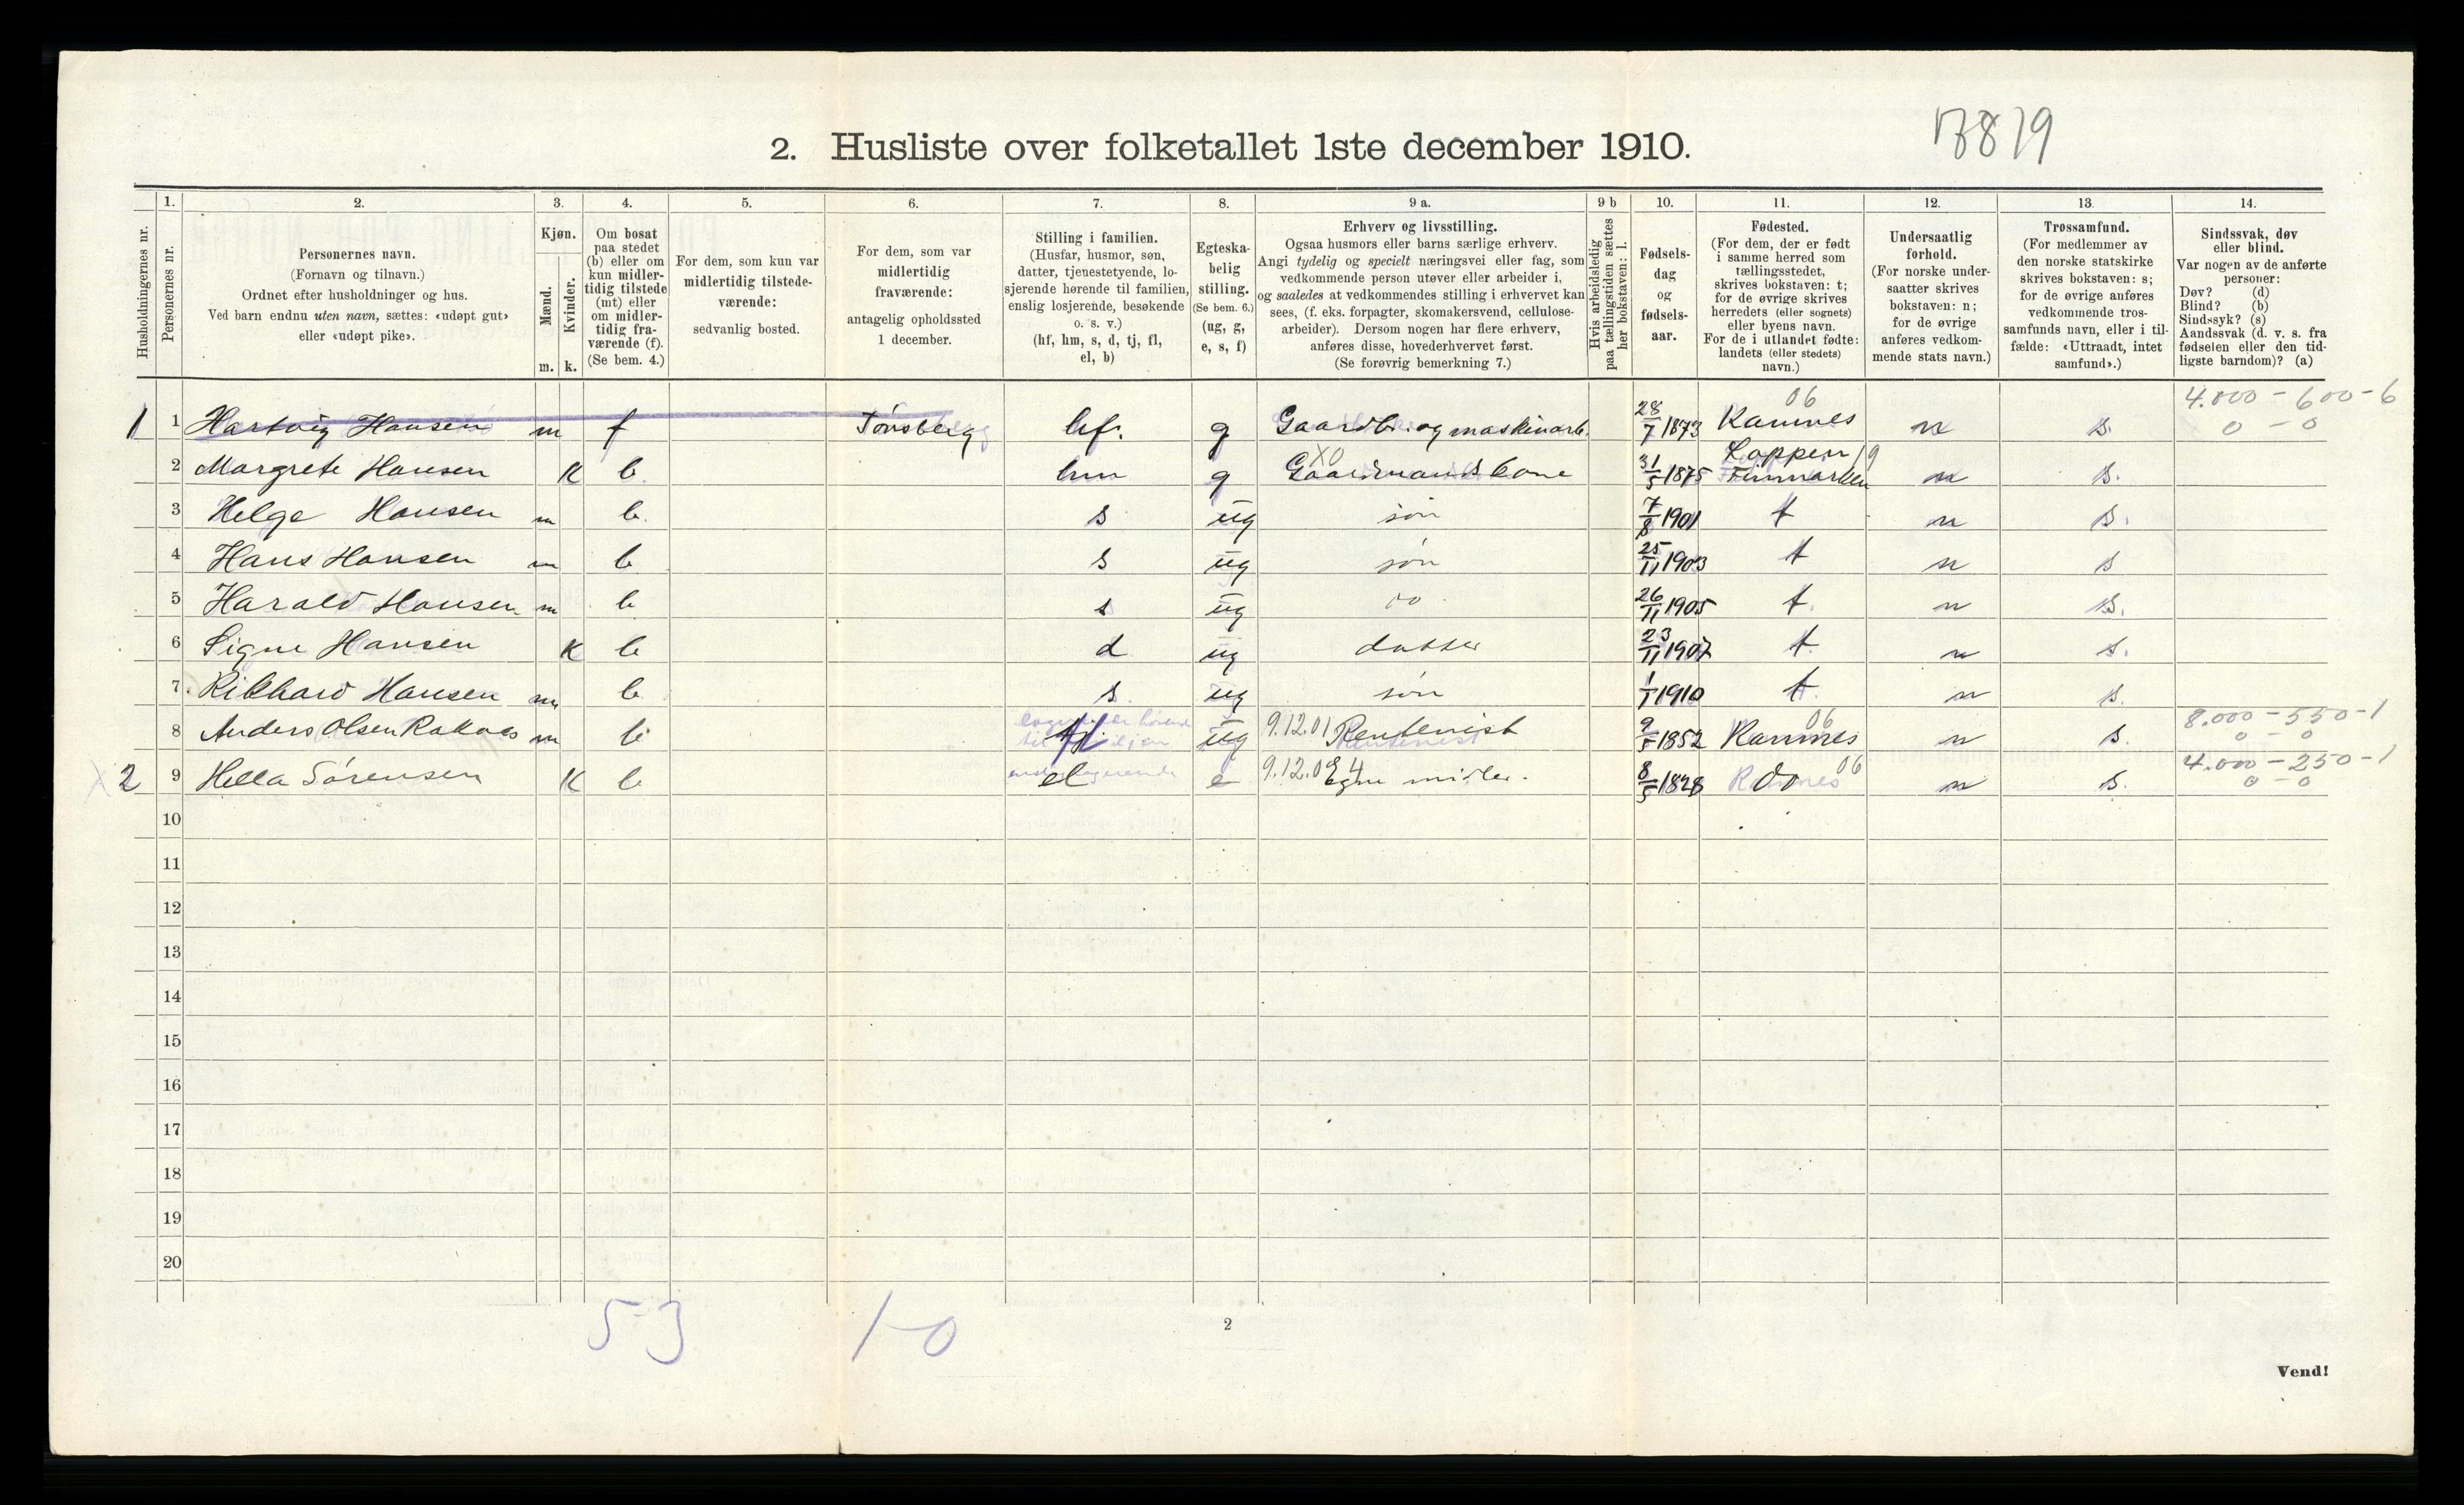 2. Husliste over folketallet 1ste december 1910.
Husholdningernes nr.
1.
Personernes nr.
2.
Personernes navn.
(Fornavn og tilnavn.)
Ordnet efter husholdninger og hus.
Ved barn endnu uten navn, sættes: «udøpt gut»
eller «udøpt pike».
3.
Kjøn.
Mænd.
Kvinder.
m. k.
4.
Om bosat
paa stedet
(b) eller om
kun midler-
tidig tilstede
(mt) eller
om midler-
tidig fra-
værende (f).
(Se bem. 4.)
5.
For dem, som kun var
midlertidig tilstede-
værende:
sedvanlig bosted.
6.
For dem, som var
midlertidig
fraværende:
antagelig opholdssted
1 december.
7.
Stilling i familien.
(Husfar, husmor, søn,
datter, tjenestetyende, lo-
sjerende hørende til familien,
enslig losjerende, besøkende
o. s. v.)
(hf, hm, s, d, tj, fl,
el, b)
8.
Egteska-
belig
stilling.
(Se bem. 6.)
(ug, g,
e, s, f)
9 a.
Erhverv og livsstilling.
Ogsaa husmors eller barns særlige erhverv.
Angi tydelig og specielt næringsvei eller fag, som
vedkommende person utøver eller arbeider i,
og saaledes at vedkommendes stilling i erhvervet kan
sees, (f. eks. forpagter, skomakersvend, cellulose-
arbeider). Dersom nogen har flere erhverv,
anføres disse, hovederhvervet først.
(Se forøvrig bemerkning 7.)
9 b
Hvis arbeidsledig
paa tællingstiden sættes
her bokstaven: l.
10.
Fødsels-
dag
og
fødsels-
aar.
11.
Fødested.
(For dem, der er født
i samme herred som
tællingsstedet,
skrives bokstaven: t;
for de øvrige skrives
herredets (eller sognets)
eller byens navn.
For de i utlandet fødte:
landets (eller stedets)
navn.)
12.
Undersaatlig
forhold.
(For norske under-
saatter skrives
bokstaven: n;
for de øvrige
anføres vedkom-
mende stats navn.)
13.
Trossamfund.
(For medlemmer av
den norske statskirke
skrives bokstaven: s;
for de øvrige anføres
vedkommende tros-
samfunds navn, eller i til-
fælde: «Uttraadt, intet
samfund».)
14.
Sindssvak, døv
eller blind.
Var nogen av de anførte
personer:
Døv? (d)
Blind? (b)
Sindssyk? (s)
Aandssvak (d. v. s. fra
fødselen eller den tid-
ligste barndom)? (a)
06 4.000 - 600 - 6
1 1 Hartvig Hansen m f Tønsberg hf. g Gaardbr. og maskinarb. 28/7 1873 Ramnes n s. 0 - 0
X0 Loppen 19
2 Margrete Hansen K b. hm g Gaardmandskone 31/5 1875 Finmarken n s.
3 Helge Hansen m b. s ug søn 7/8 1901 t n s.
4 Hans Hansen m b s ug søn 25/11 1903 t n s
5 Harald Hansen m b s ug do 26/11 1905 t. n s.
6 Signe Hansen K b d ug datter 23/11 1907 t n s.
7 Rikhard Hansen m b s. ug søn 1/1 1910 t. n s.
06 8.000 - 550 - 1
8 Anders Olsen Rakaas m b fl ug 9.12.01 Rentenist 9/5 1852 Ramnes n s. 0 - 0
06 4.000 - 250 - 1
2 9 Hella Sørensen K b el e 9.12.04 Egne midler. 8/5 1828 do n s. 0 - 0
10
11
12
13
14
15
16
17
18
19
20
5-3 1-0
2
Vend!